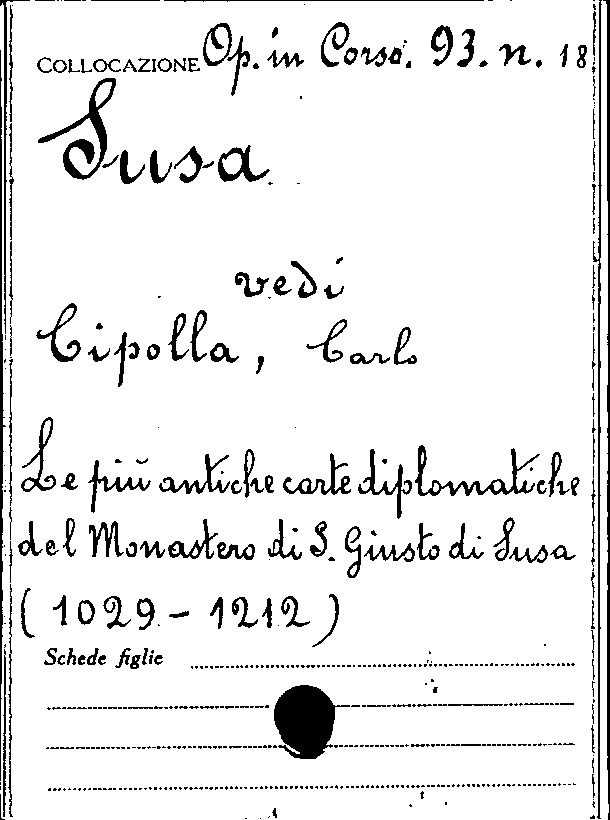 COLLOCAZIONE Op. in Corso. 93. n. 18
Susa
vedi
Cipolla, Carlo
Le più antiche carte diplomatiche
del Monastero di S. Giusto di Susa
(1029 - 1212)
Schede figlie